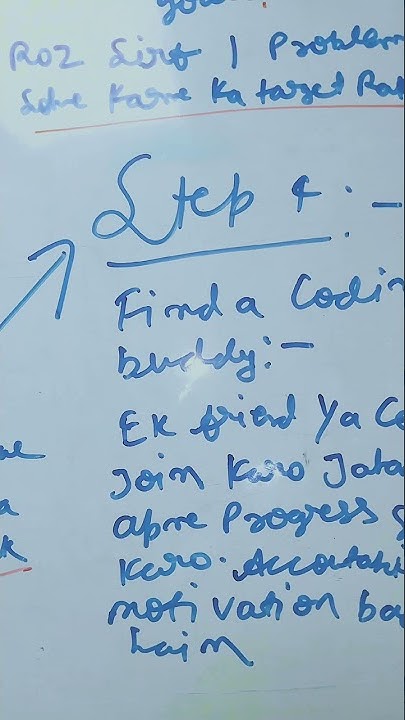 Roz Sirf 1 Problem
Solve Karne Ka target Ra
Step 4:-
Find a Codin
buddy:-
Ek friend Ya Co
Join Karo Jaha
apne Progress S
Karo. Accountabi
motivation ba
hain